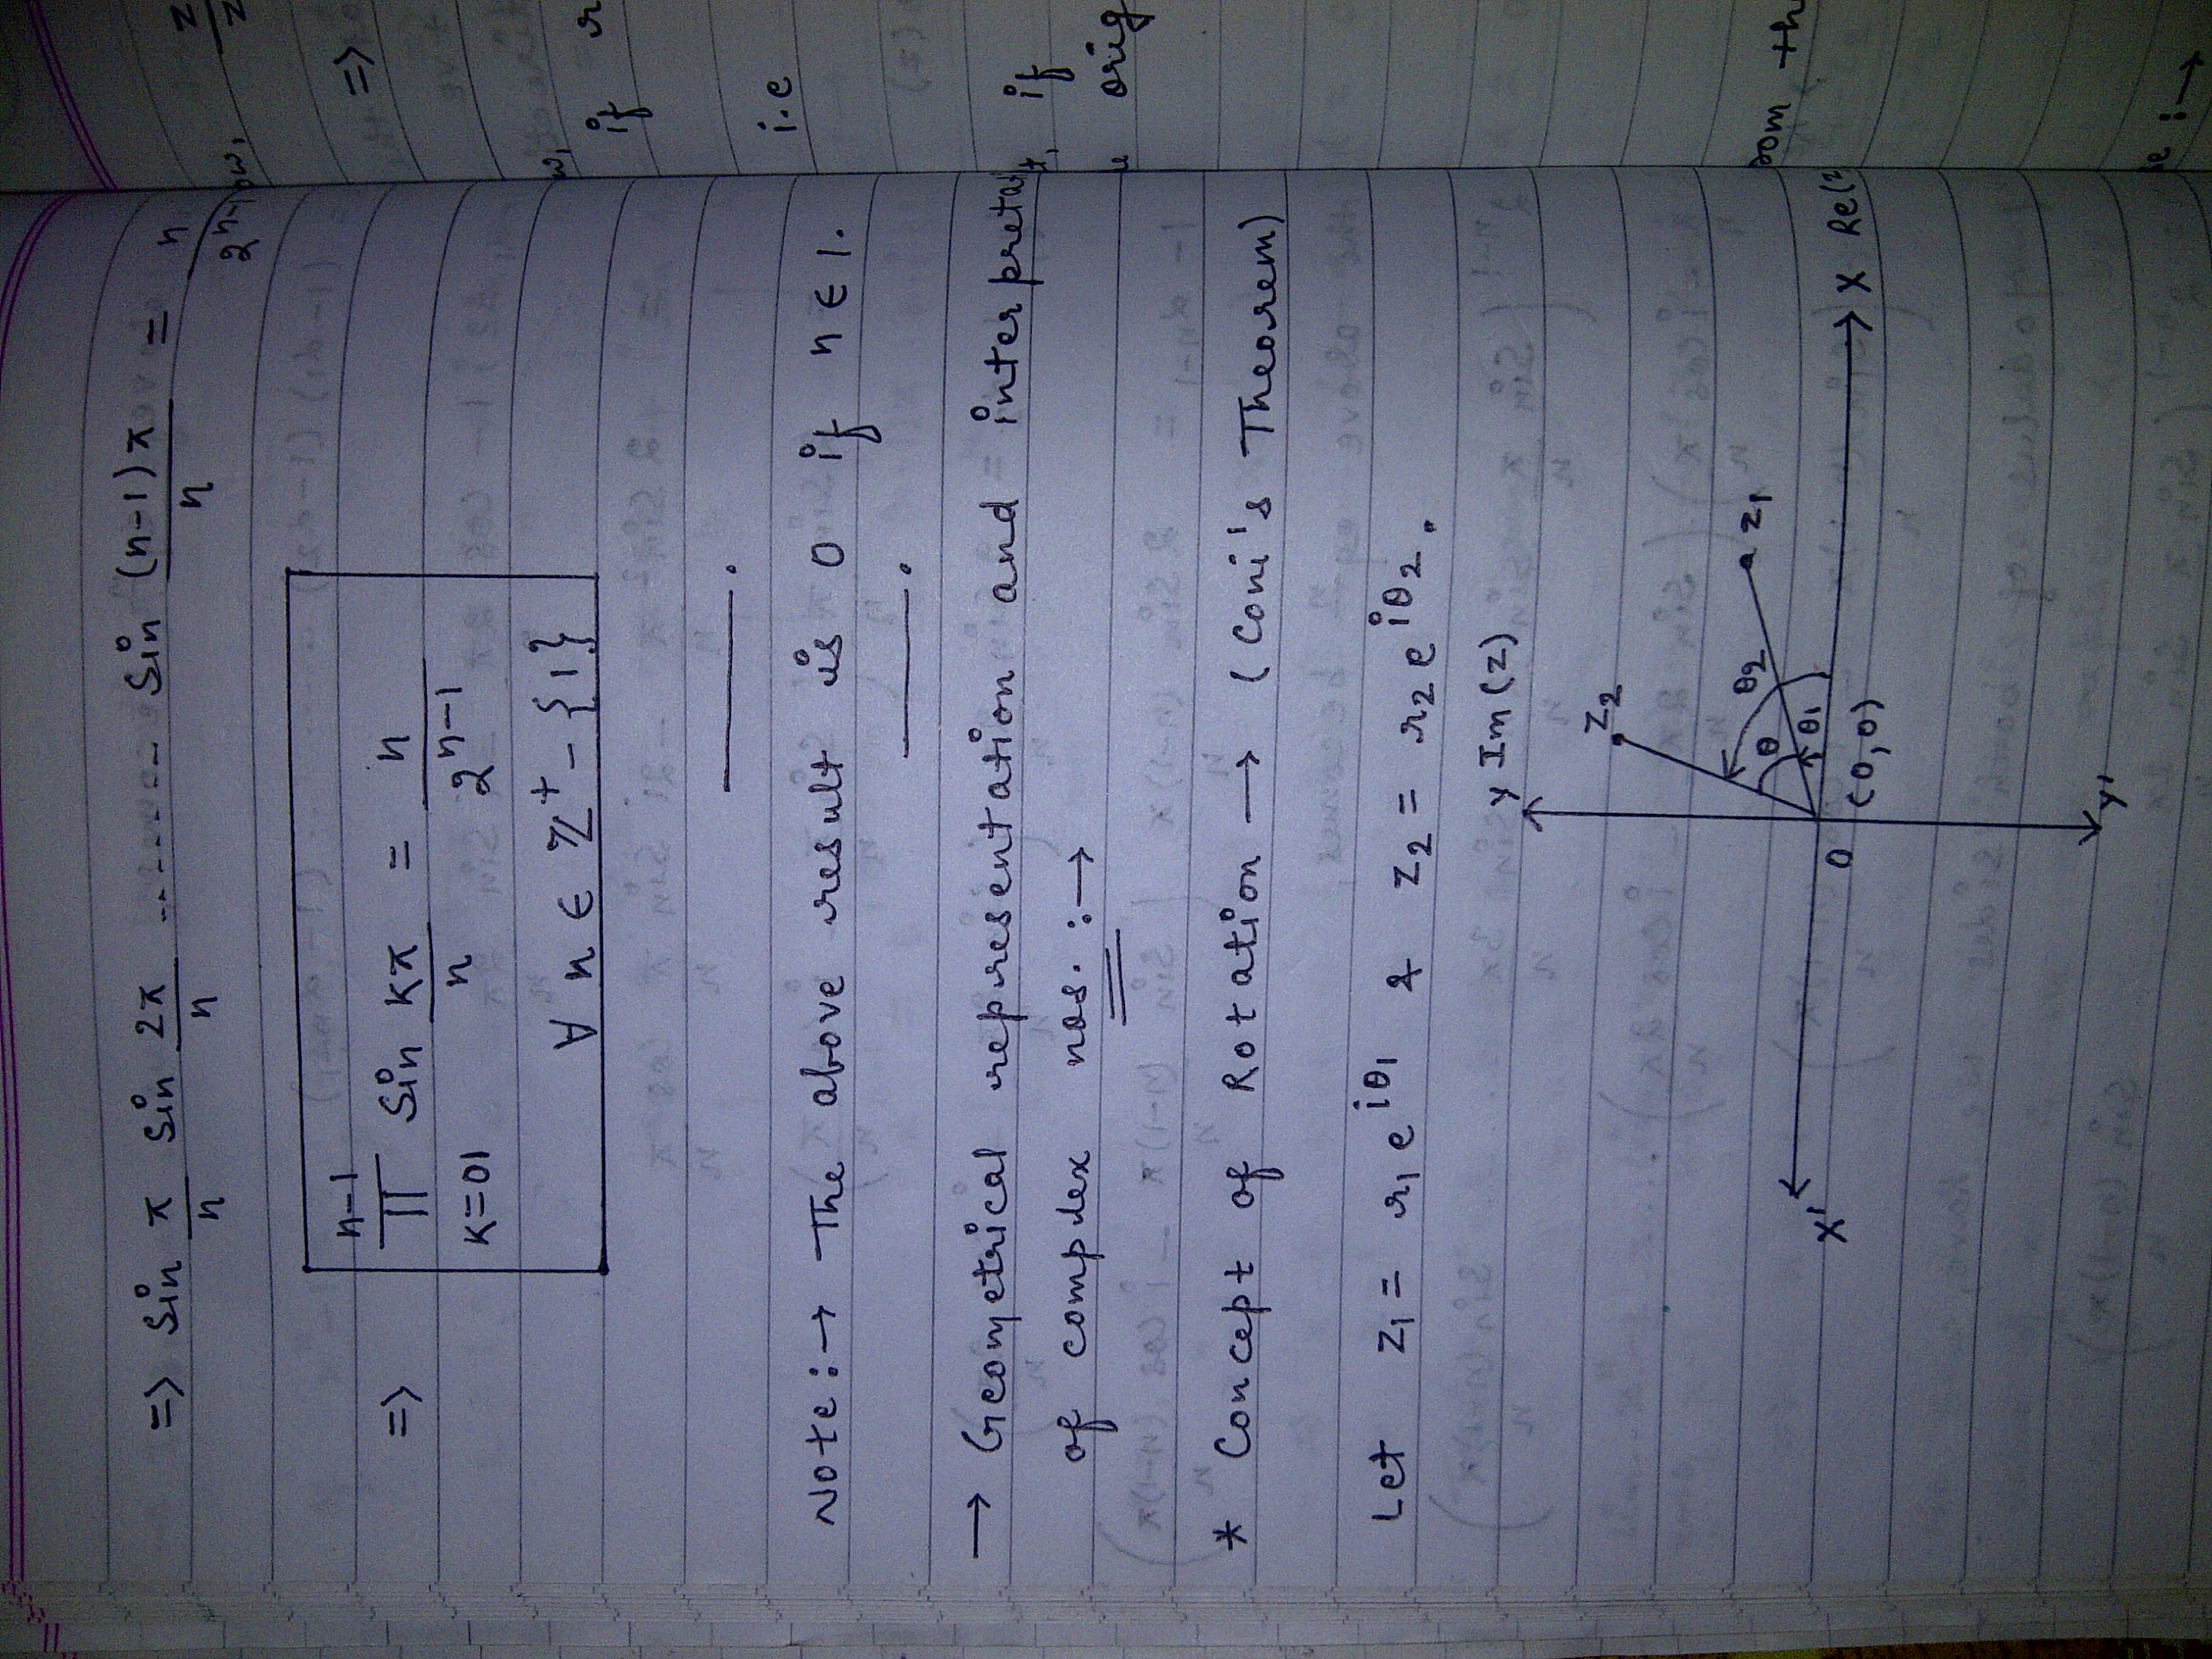 => Sin π/n Sin 2π/n -------- Sin (n-1)π/n = n/2^(n-1)
=> n-1
∏ Sin kπ/n = n/2^(n-1)
K=01
∀ n ∈ Z⁺ - {1}
Note :→ The above result is 0 if n ∈ 1.
→ Geometrical representation and interpretat
of complex nos. :→
* Concept of Rotation → (Coni's Theorem)
Let z₁ = r₁e^(iθ₁) & z₂ = r₂e^(iθ₂).
y Im(z)
z₂
θ₂
z₁
θ
θ₁
X'
O
(0,0)
X Re(z
y'
=>
if
i.e
if
orig
th
:→